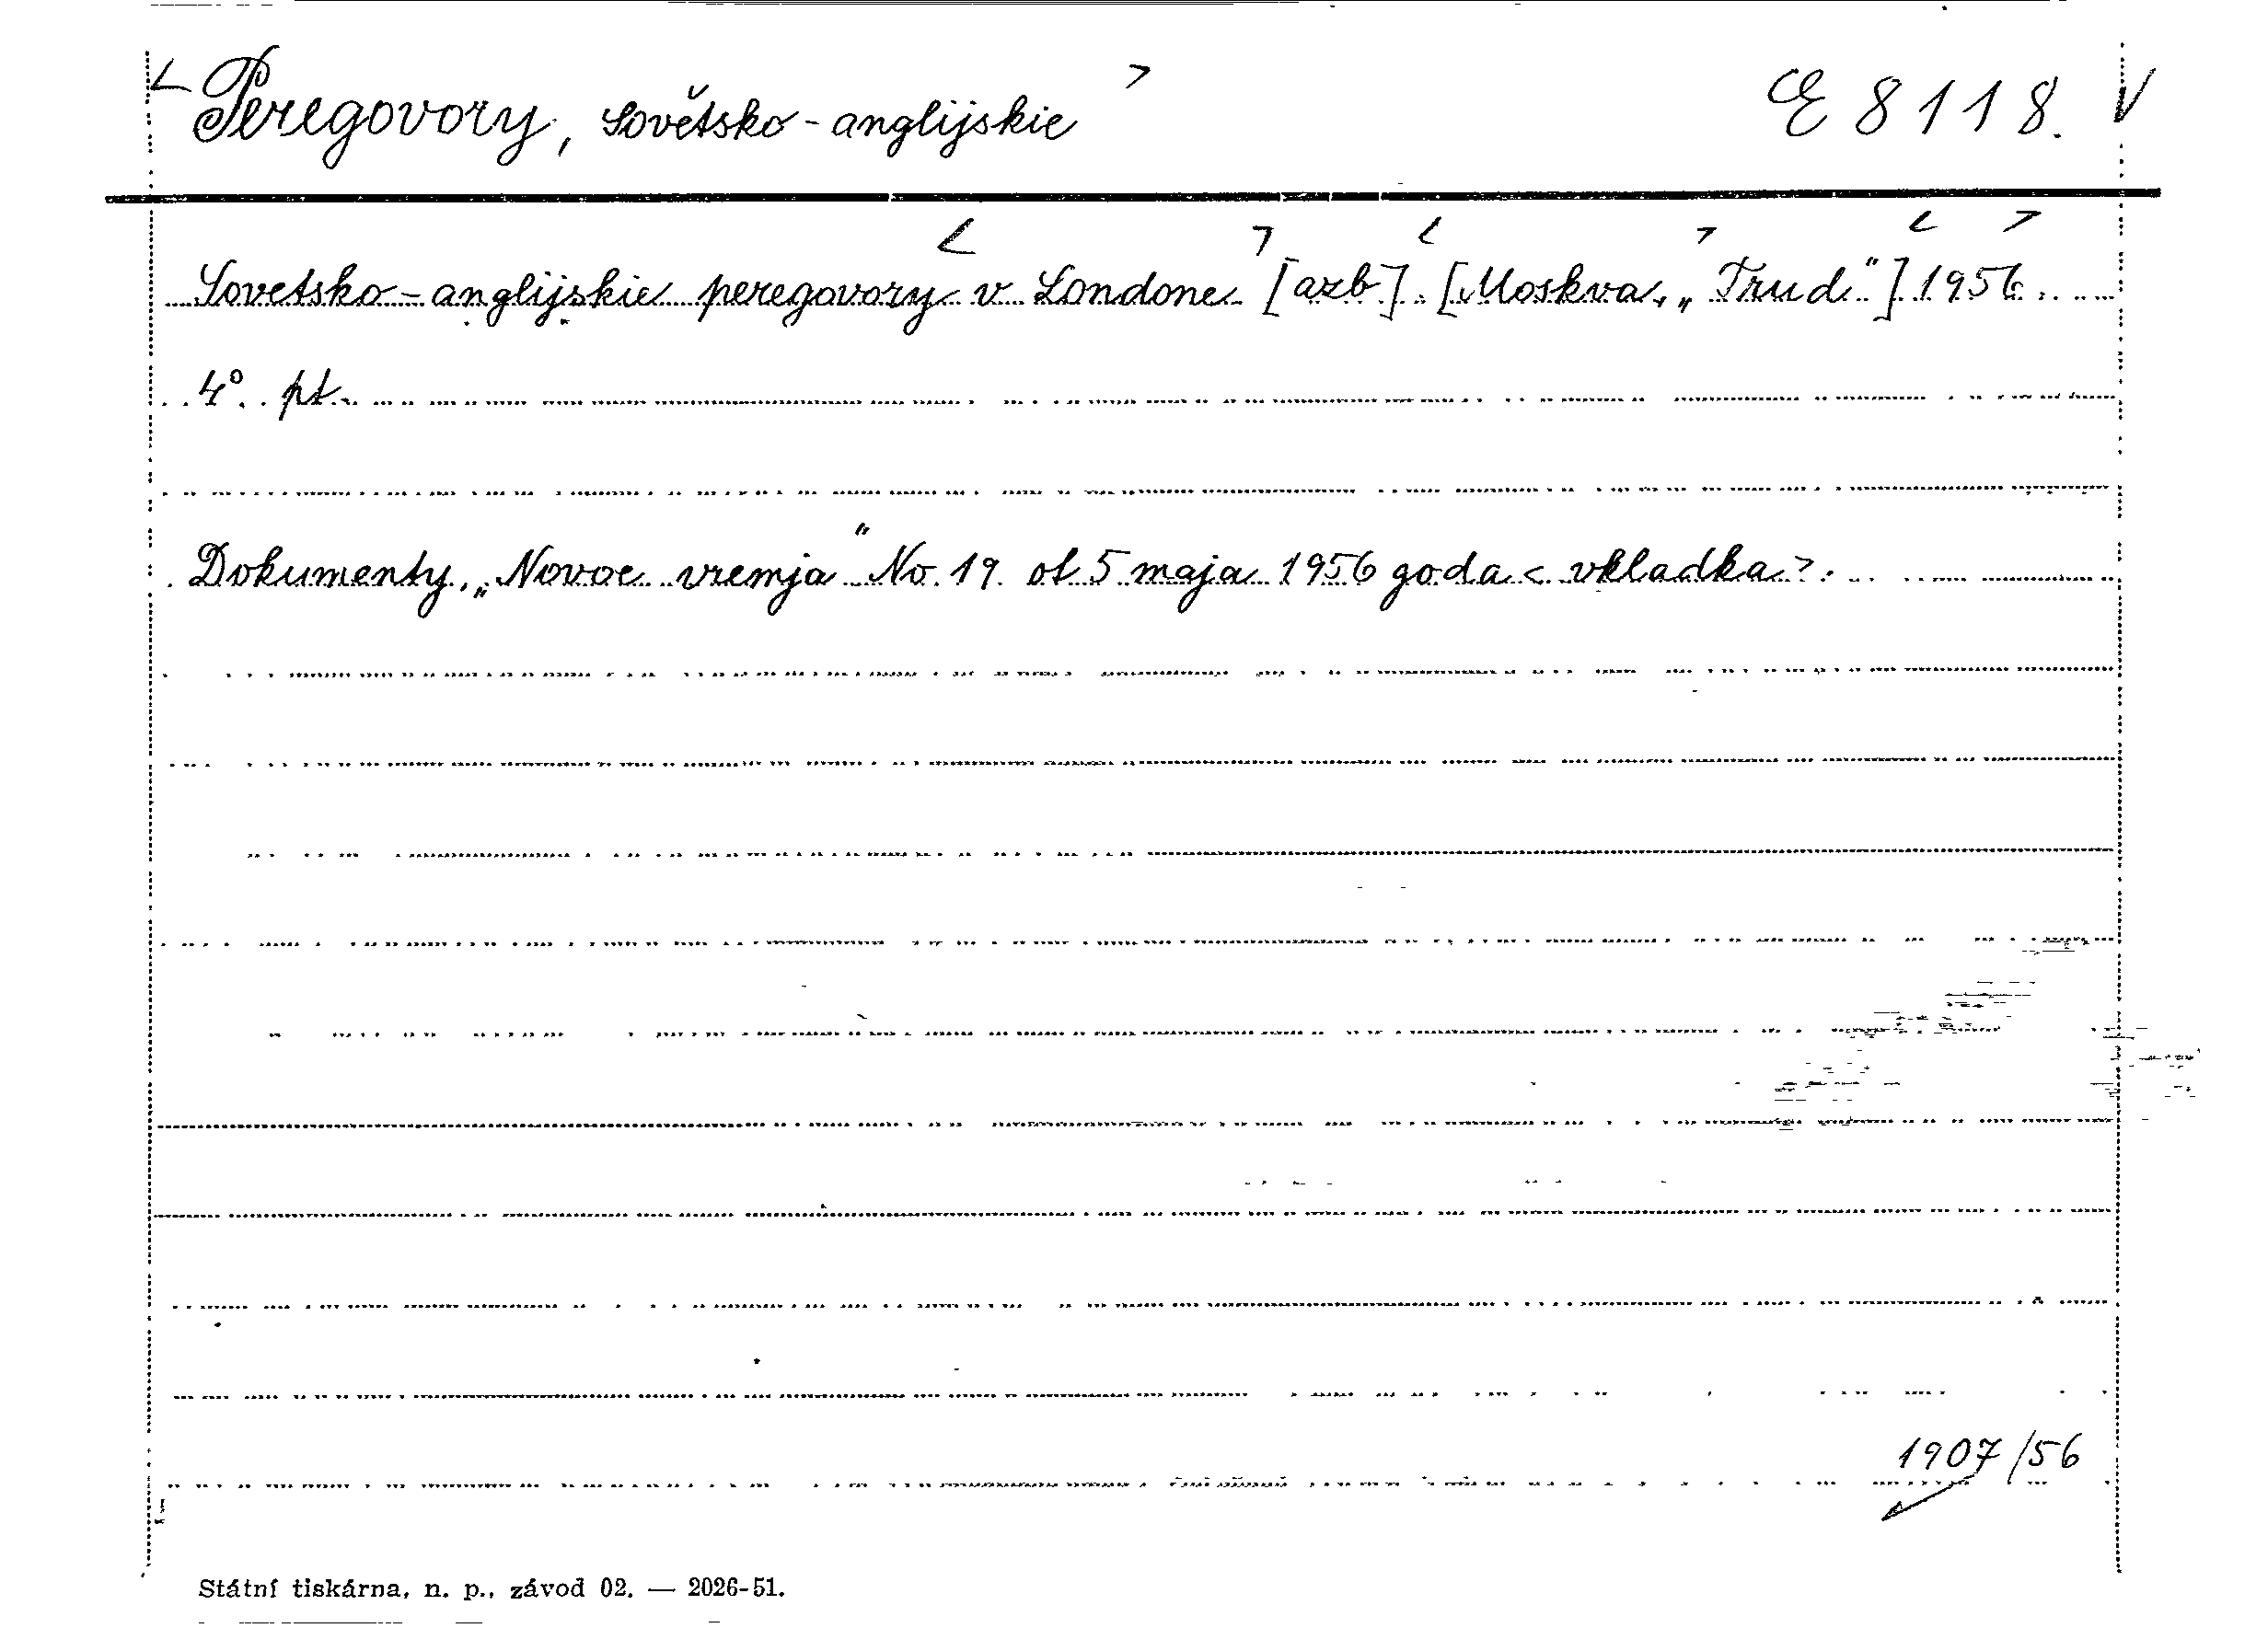 < Peregovory, sovětsko-anglijskie > E 8118. V
< > < > < >
Sovetsko-anglijskie peregovory v Londone [azb]. [Moskva, „Trud"] 1956.
4°. pt.
Dokumenty, „Novoe vremja" No. 19 ot 5 maja 1956 goda < vkladka >.
1907/56
Státní tiskárna, n. p., závod 02. — 2026-51.